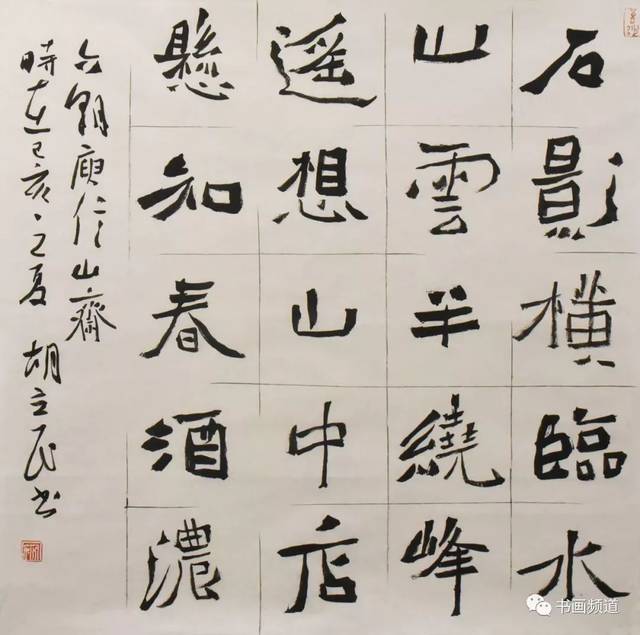 石影横臨水
山雲半繞峰
遥想山中店
懸知春酒濃
六朝庾信山齋
時在己亥之夏 胡立民书
书画频道